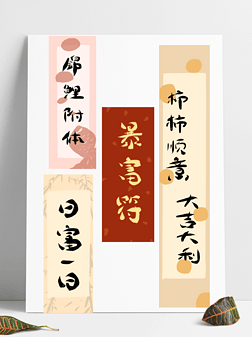 锦鲤附体
暴富符
柿柿顺意
大吉大利
日富一日